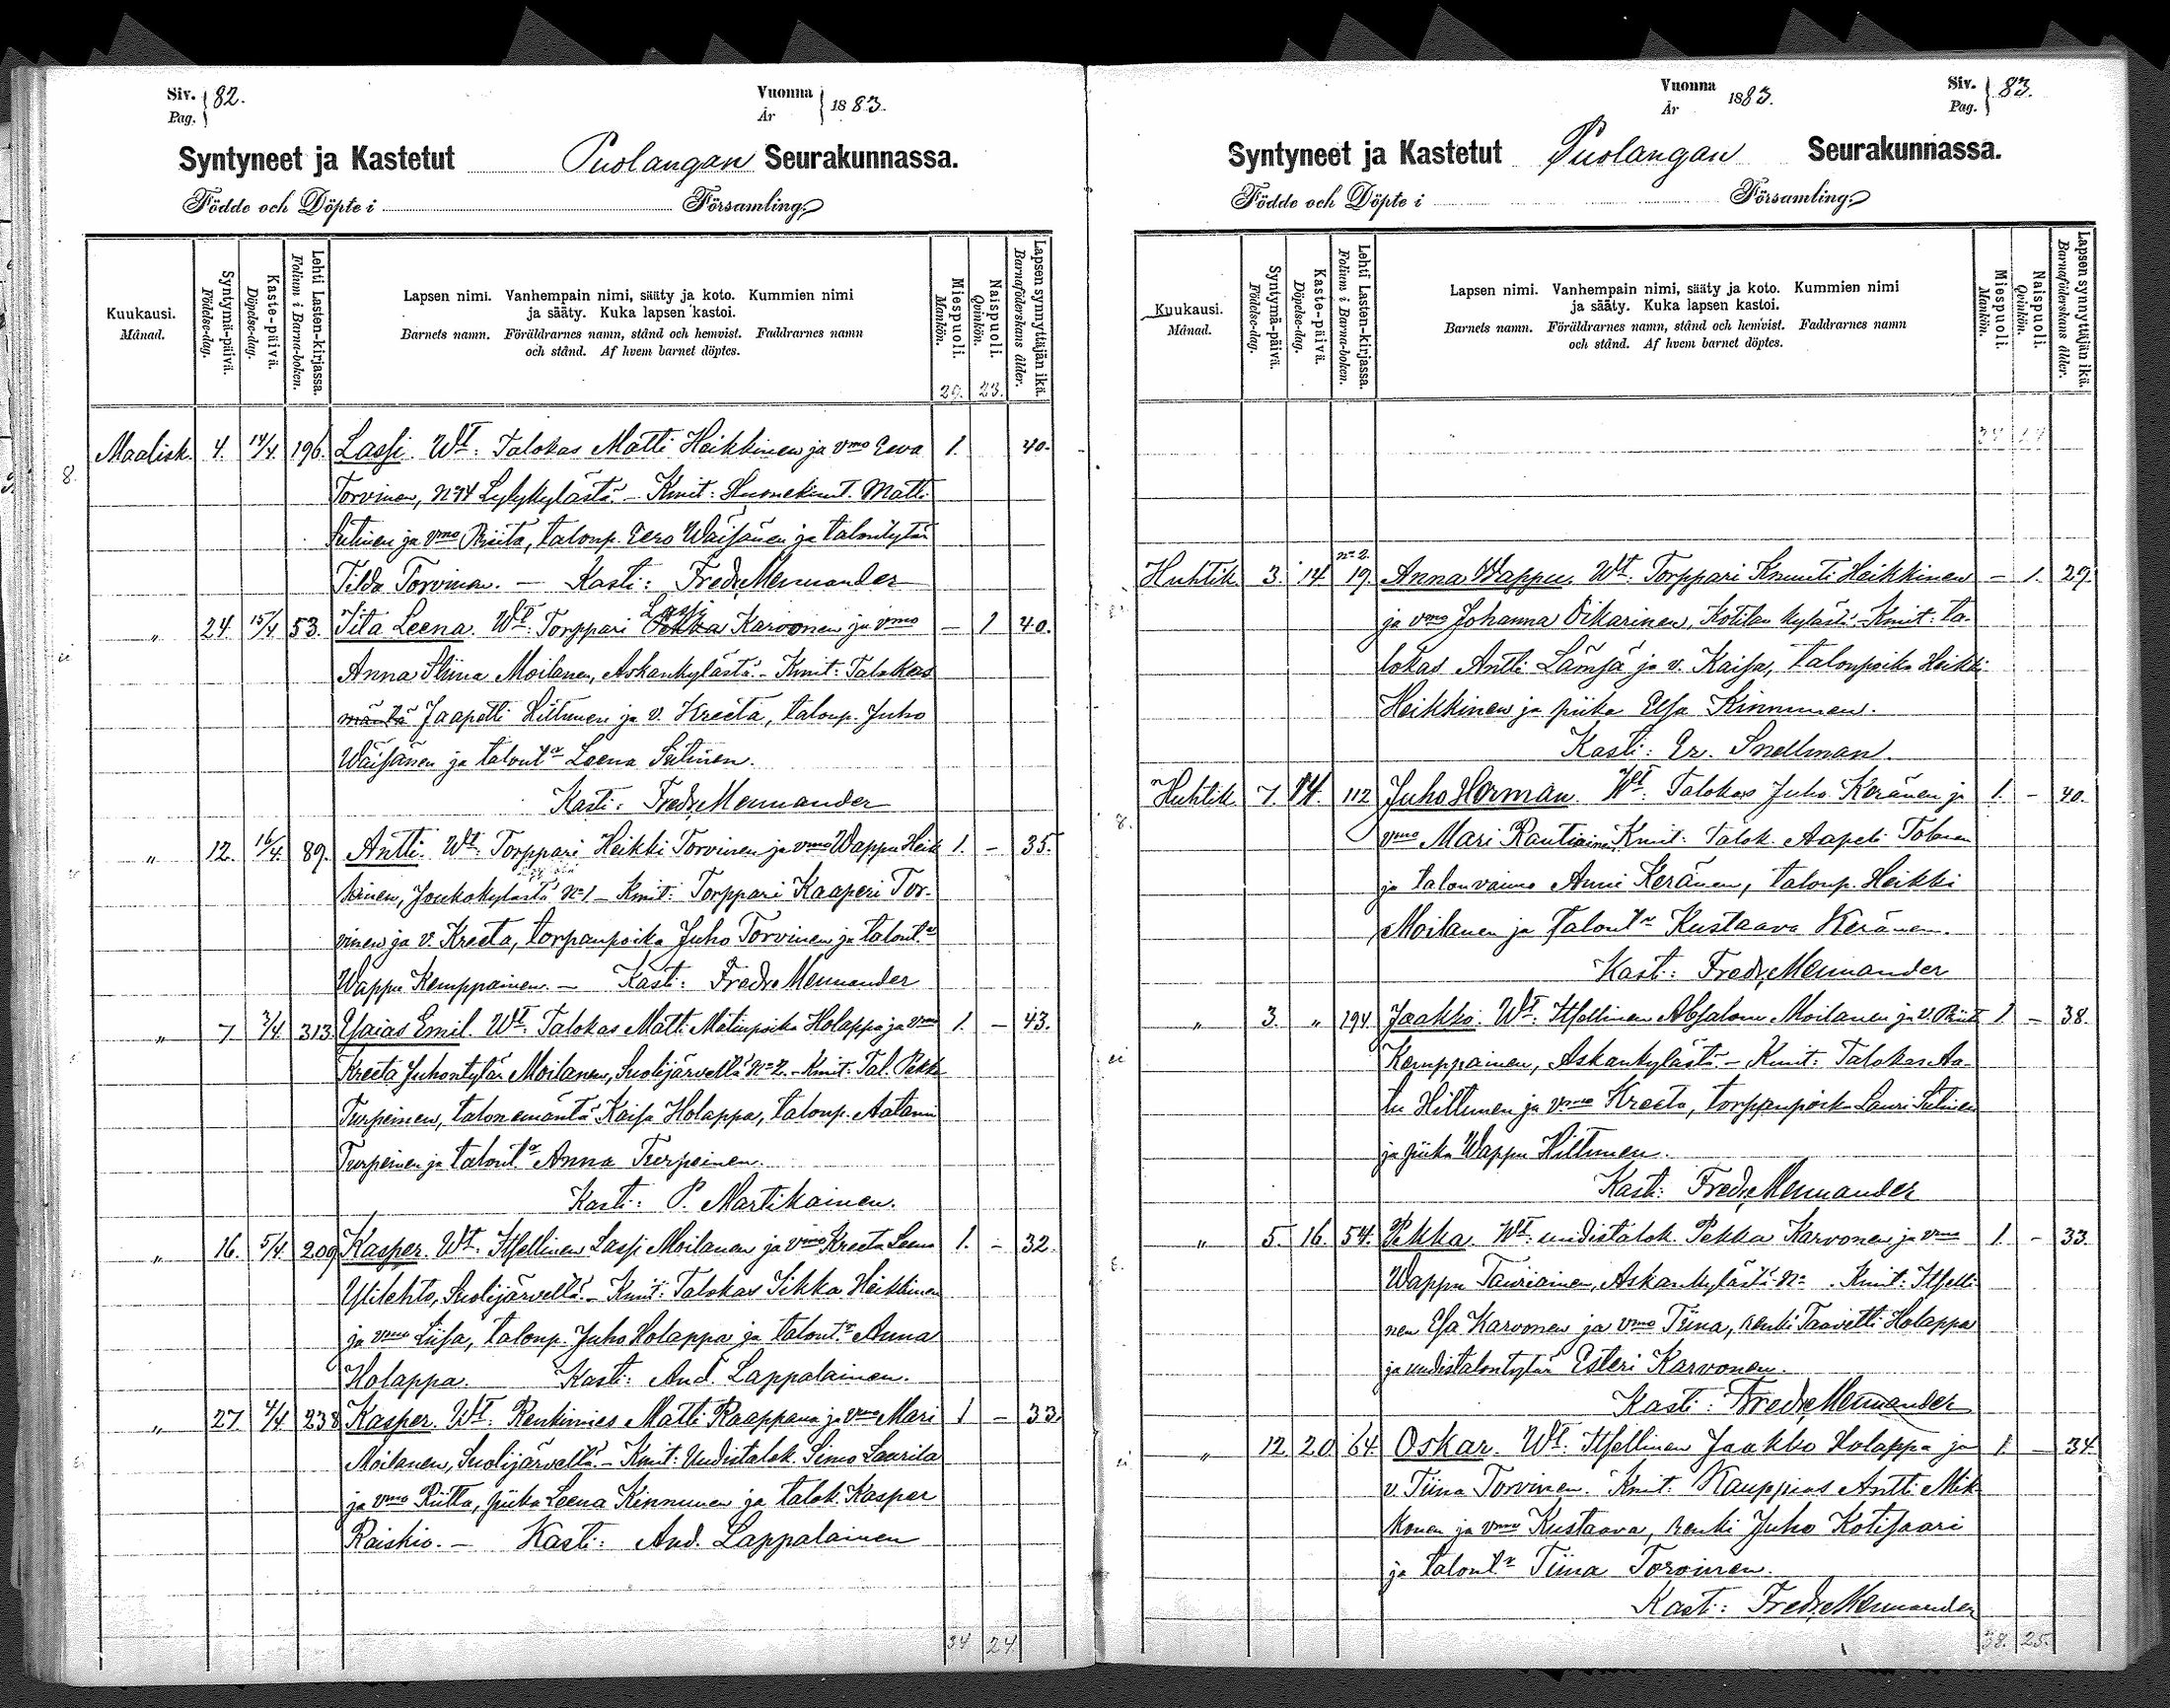 Siv. Pag. 82.
Vuonna År 1883.
Syntyneet ja Kastetut Puolangan Seurakunnassa.
Födde och Döpte i Församling.
Kuukausi. Månad.
Syntymä-päivä. Födelse-dag.
Kaste-päivä. Döpelse-dag.
Lehti Lasten-kirjassa. Folium i Barna-boken.
Lapsen nimi. Vanhempain nimi, sääty ja koto. Kummien nimi
ja sääty. Kuka lapsen kastoi.
Barnets namn. Föräldrarnes namn, stånd och hemvist. Faddrarnes namn
och stånd. Af hvem barnet döptes.
Miespuoli. Mankön.
Naispuoli. Qvinkön.
Lapsen synnyttäjän ikä. Barnaföderskans ålder.
29. 23.
Maalisk. 4. 14/4. 196. Lassi. Wt: Talokas Matti Heikkinen ja vmo Eeva 1. 40.
Torvinen, No 14 Lylykylästä. – Kmit: Huonekunt. Matti
Sutinen ja vmo Riita, taloup. Eero Wäisänen ja talontytär
Tilda Torvinen. – Kasti: Fredr. Mennander
„ 24. 15/4 53. Iita Leena. Wt: Torppari Pekka Lassi Karvonen ja vmo – 1 40.
Anna Stiina Moilanen, Askankylästä. – Kmit: Talokas
mäntä Jaapetti Hiltunen ja v. Kreeta, taloup. Juho
Wäisänen ja talontr Leena Sutinen.
Kasti: Fredr. Mennander
„ 12. 16/4. 89. Antti. Wt: Torppari Heikki Torvinen ja vmo Wappu Heik 1. – 35.
kinen, Joukokylästä No 1 – Kmit: Torppari Kaaperi Tor-
vinen ja v. Kreeta, torpanpoika Juho Torvinen ja talontr
Wappu Kemppainen. – Kasti: Fredr. Mennander
„ 7. 3/4. 313. Esaias Emil. Wt: Talokas Matti Matinpoika Holappa ja vmo 1. – 43.
Kreeta Juhontytär Moilanen, Suolijärvellä No 2. – Kmit: Tal. Pekk
Turpeinen, talonemäntä Kaisa Holappa, taloup. Aatami
Turpeinen ja talontr Anna Turpeinen.
Kasti: P. Martikainen.
„ 16. 5/4. 209 Kasper. Wt: Itsellinen Lassi Moilanen ja vmo Kreeta Leena 1. – 32.
Ylilehto, Suolijärvellä. – Kmit: Talokas Sikka Heikkinen
ja vmo Liisa, taloup. Juho Holappa ja talontr Anna
Holappa. Kasti: And. Lappalainen.
„ 27. 4/4 238 Kasper. Wt: Renkimies Matti Raappana ja vmo Mari 1 – 33.
Moilanen, Suolijärvellä. – Kmit: Uudistalok. Simo Laurila
ja vmo Riitta, piika Leena Kinnunen ja talok. Kasper
Raiskio. – Kasti: And. Lappalainen
34 24
Vuonna År 1883.
Siv. Pag. 83.
Syntyneet ja Kastetut Puolangan Seurakunnassa.
Födde och Döpte i Församling.
Kuukausi. Månad.
Syntymä-päivä. Födelse-dag.
Kaste-päivä. Döpelse-dag.
Lehti Lasten-kirjassa. Folium i Barna-boken.
Lapsen nimi. Vanhempain nimi, sääty ja koto. Kummien nimi
ja sääty. Kuka lapsen kastoi.
Barnets namn. Föräldrarnes namn, stånd och hemvist. Faddrarnes namn
och stånd. Af hvem barnet döptes.
Miespuoli. Mankön.
Naispuoli. Qvinkön.
Lapsen synnyttäjän ikä. Barnaföderskans ålder.
34 24
Huhtik. 3. 14 No 2. 19. Anna Wappu. Wt: Torppari Knuuti Heikkinen – 1. 29.
ja vmo Johanna Oikarinen, Kotilan kylästä. – Kmit: ta-
lokas Antti Lämsä ja v. Kaisa, talonpoika Heikki
Heikkinen ja piika Elsa Kinnunen.
Kasti: Er. Snellman.
Huhtik 7. 14. 112 Juho Herman. Wt: Talokas Juho Keränen ja 1. – 40.
vmo Mari Rautiainen Kmit: Talok. Aapeli Tolonen
ja talonvaimo Anni Keränen, taloup. Heikki
Moilanen ja talontr Kustaava Keränen.
Kasti: Fredr. Mennander
„ 3. „ 194. Jaakko. Wt: Itsellinen Absalom Moilanen ja v. Riita 1 – 38.
Kemppainen, Askankylästä – Kmit: Talokas Aa-
tu Hiltunen ja vmo Kreeta, torpanpoika Lauri Sutinen
ja piika Wappu Hiltunen.
Kasti: Fredr. Mennander
„ 5. 16. 54. Pekka. Wt: uudistalok. Pekka Karvonen ja vmo 1 – 33.
Wappu Tauriainen, Askankylästä No . Kmit: Itselli-
nen Esa Karvonen ja vmo Tiina, renki Taavetti Holappa
ja uudistalontytär Esteri Karvonen.
Kasti: Fredr. Mennander
„ 12 20 64. Oskar. Wt: Itsellinen Jaakko Holappa ja 1. – 34.
v. Tiina Torvinen. Kmit: Kauppias Antti Mik-
konen ja vmo Kustaava, renki Juho Kotisaari
ja talontr Tiina Torvinen.
Kasti: Fredr. Mennander
38. 25.